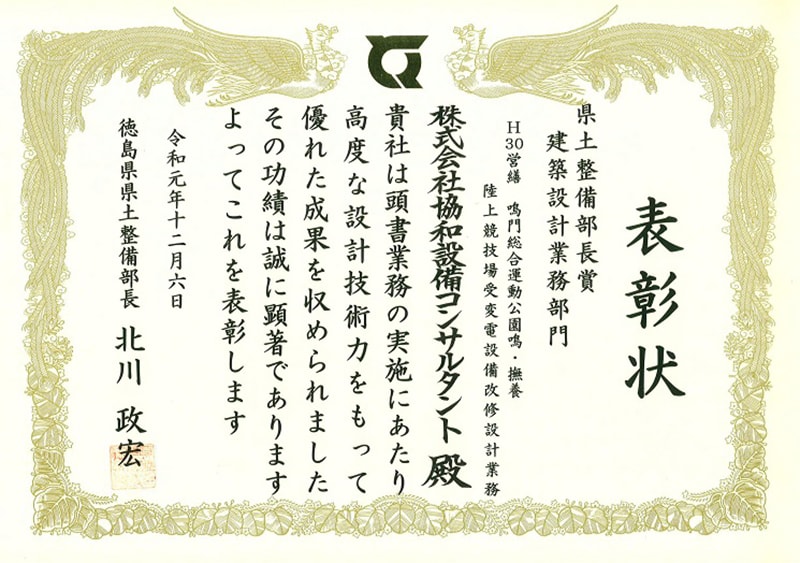 表彰状
県土整備部長賞
建築設計業務部門
H30営繕 鳴門総合運動公園鳴・撫養
陸上競技場受変電設備改修設計業務
株式会社協和設備コンサルタント 殿
貴社は頭書業務の実施にあたり
高度な設計技術力をもって
優れた成果を収められました
その功績は誠に顕著であります
よってこれを表彰します
令和元年十二月六日
徳島県県土整備部長 北川 政宏